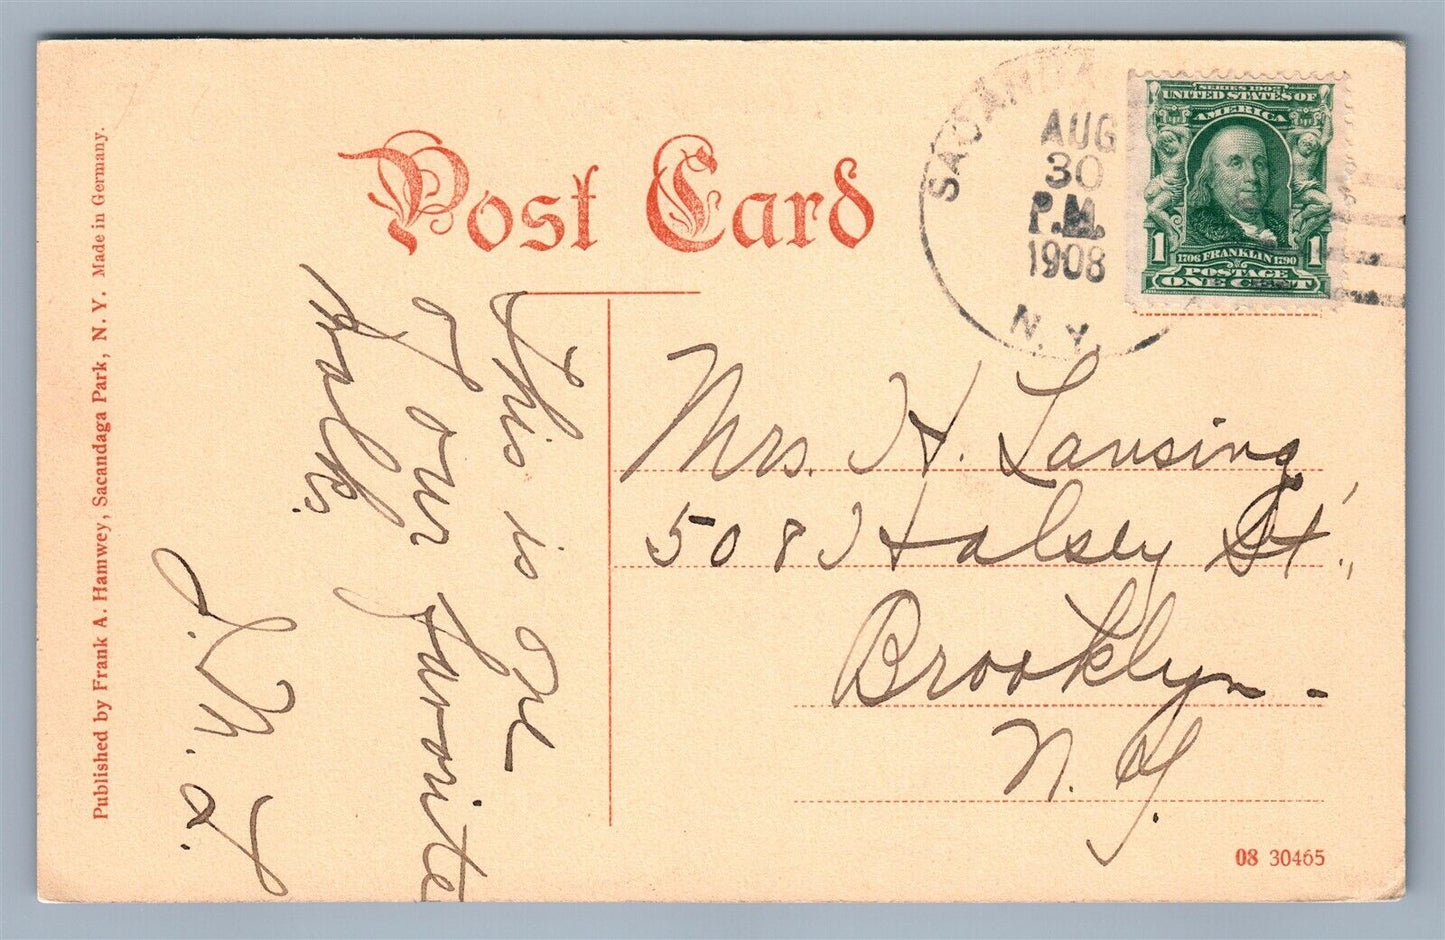 Post Card
SACANDAGA
AUG
30
P.M.
1908
N.Y.
SERIES 1902
UNITED STATES OF
AMERICA
1 1706 FRANKLIN 1790 1
POSTAGE
ONE CENT
This is one
of our favorite
walks.
Mrs. H. Lansing,
508 Halsey St.,
Brooklyn -
N. Y.
Published by Frank A. Hamwey, Sacandaga Park, N. Y. Made in Germany.
08 30465